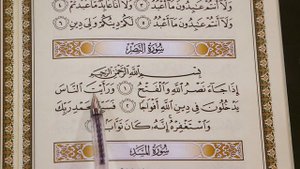 وَلَآ أَنتُمْ عَٰبِدُونَ مَآ أَعْبُدُ ٣ وَلَآ أَنَا۠ عَابِدٌ مَّا عَبَدتُّمْ ٤
وَلَآ أَنتُمْ عَٰبِدُونَ مَآ أَعْبُدُ ٥ لَكُمْ دِينُكُمْ وَلِىَ دِينِ ٦
سُورَةُ النَّصْرِ
بِسْمِ ٱللَّهِ ٱلرَّحْمَٰنِ ٱلرَّحِيمِ
إِذَا جَآءَ نَصْرُ ٱللَّهِ وَٱلْفَتْحُ ١ وَرَأَيْتَ ٱلنَّاسَ
يَدْخُلُونَ فِى دِينِ ٱللَّهِ أَفْوَاجًا ٢ فَسَبِّحْ بِحَمْدِ رَبِّكَ
وَٱسْتَغْفِرْهُ إِنَّهُۥ كَانَ تَوَّابًۢا ٣
سُورَةُ المَسَدِ